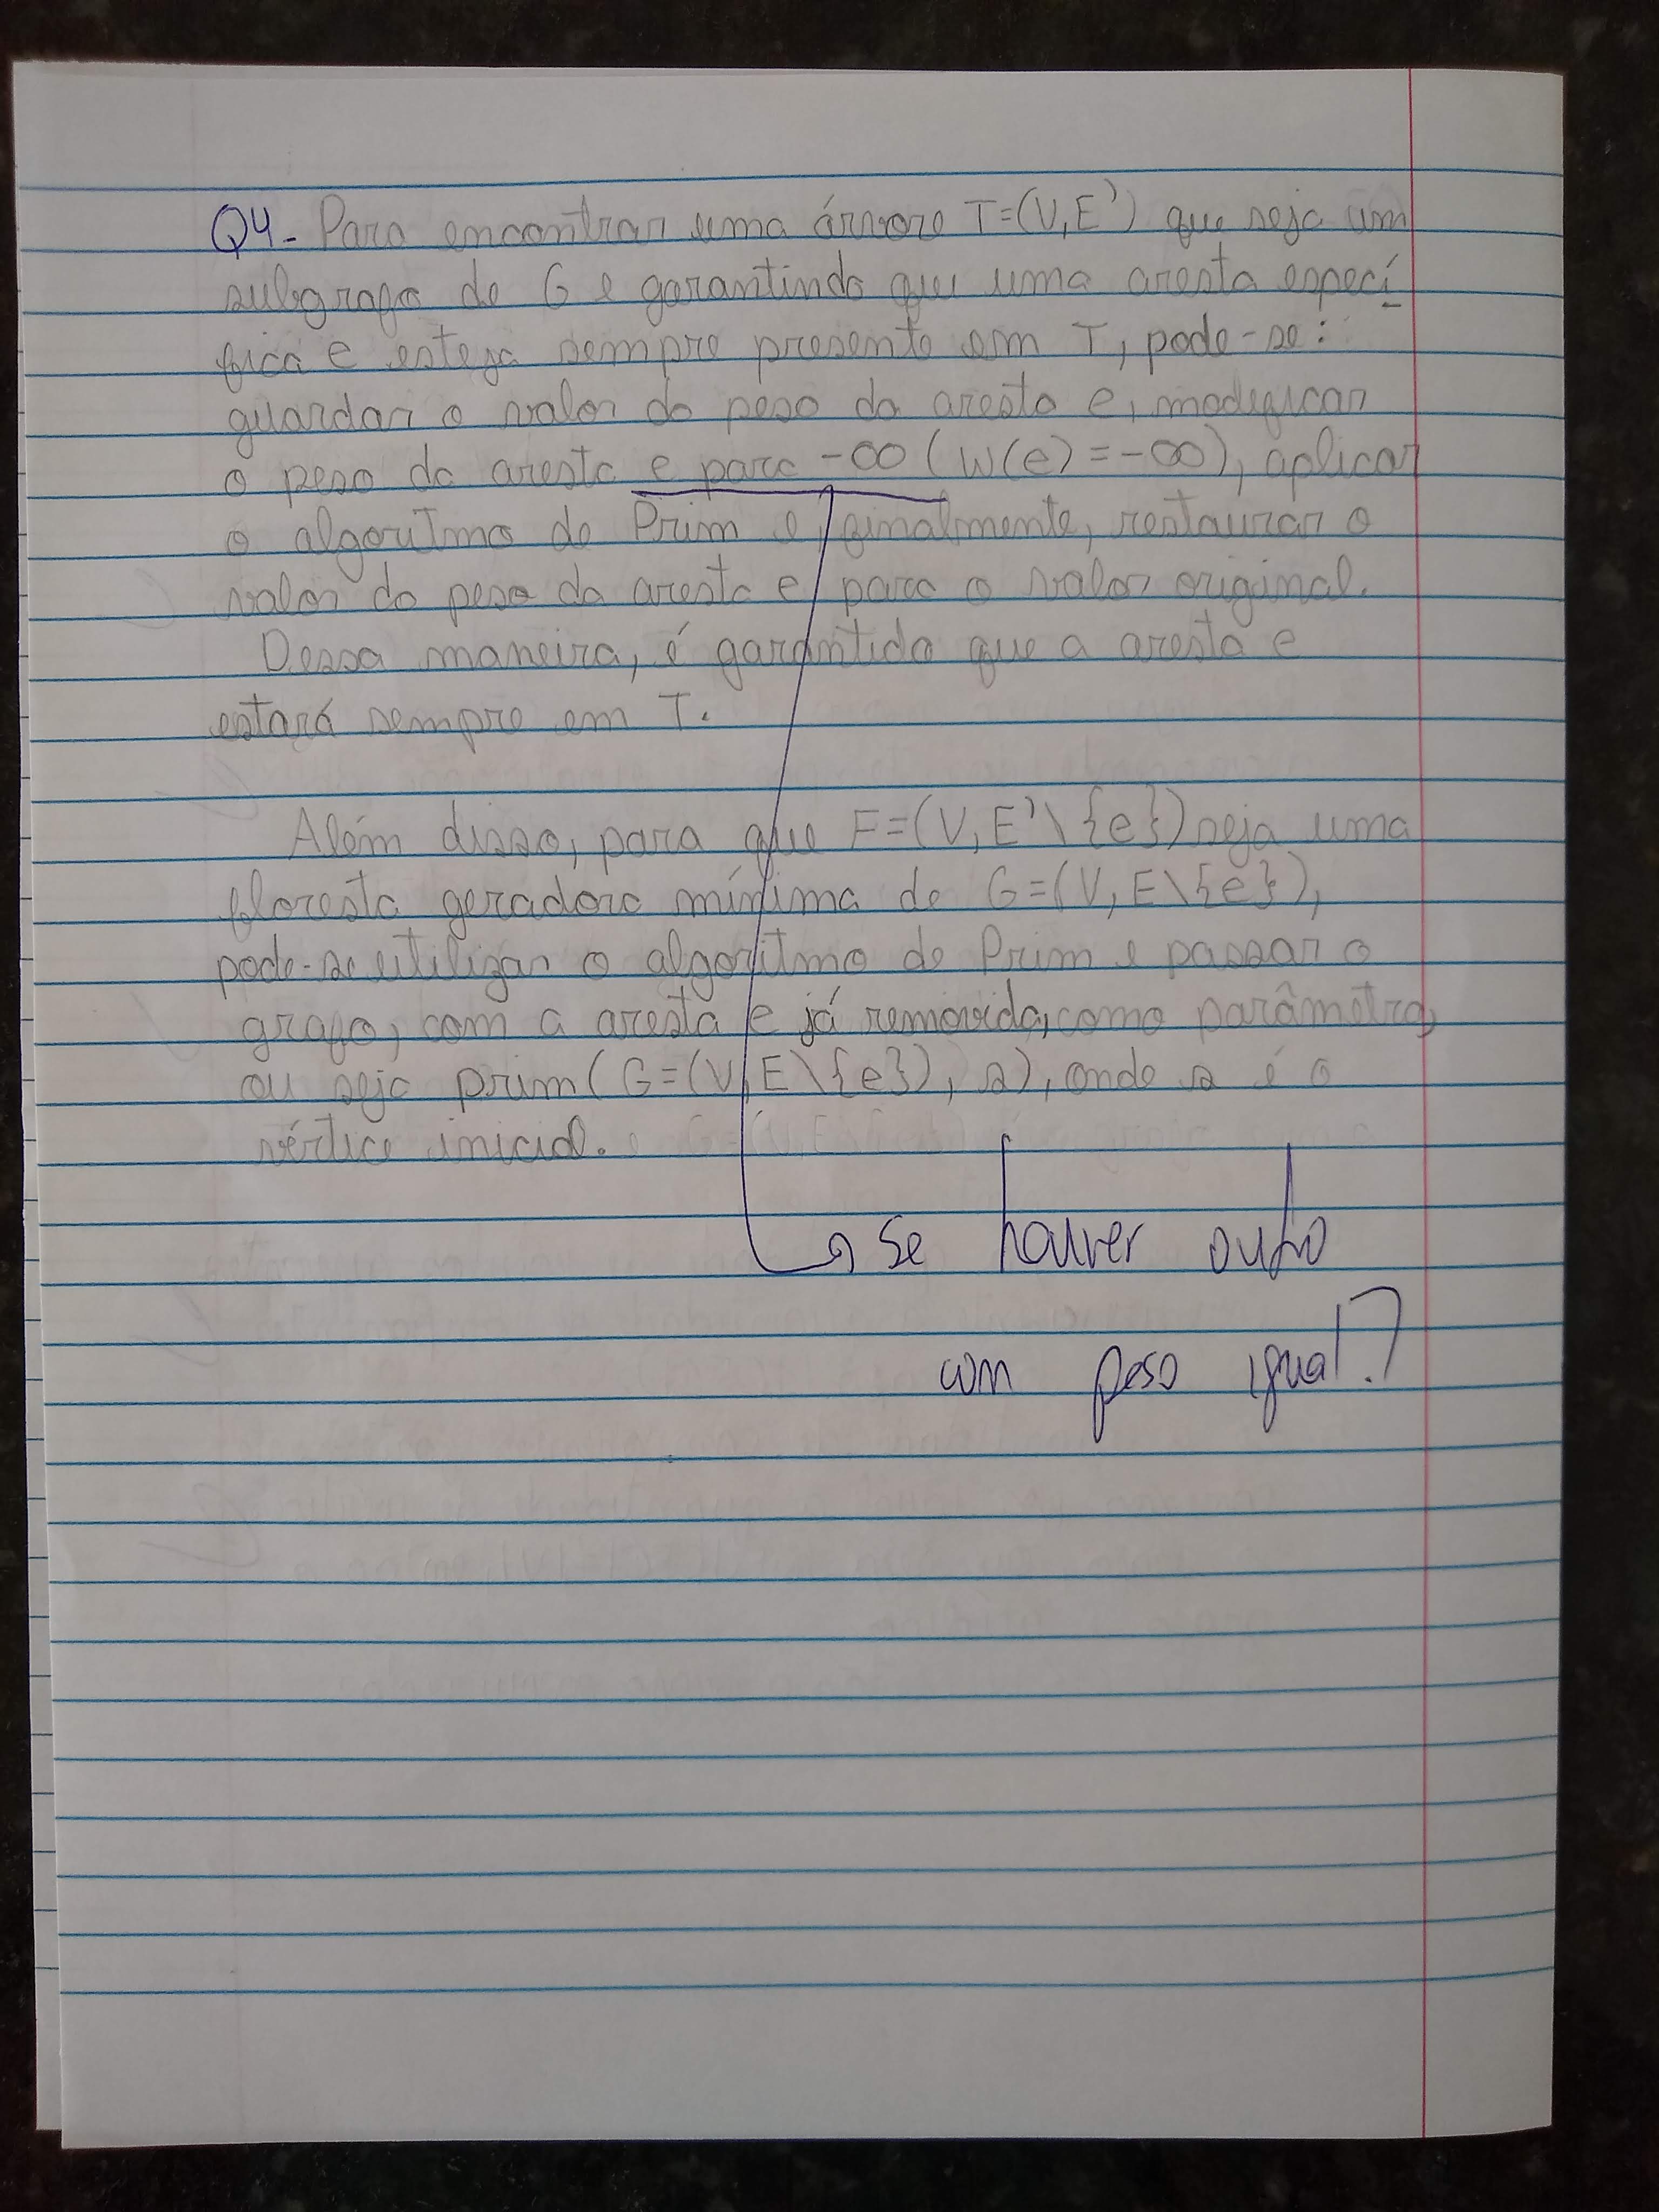 Q4- Para encontrar uma árvore T=(V,E') que seja um
subgrafo de G e garantindo que uma aresta especí
fica e esteja sempre presente em T, pode-se:
guardar o valor do peso da aresta e, modificar
o peso da aresta e para -∞ (W(e)=-∞), aplicar
o algoritmo de Prim e, finalmente, restaurar o
valor do peso da aresta e para o valor original.
Dessa maneira, é garantido que a aresta e
estará sempre em T.
Além disso, para que F=(V,E'\{e}) seja uma
floresta geradora mínima de G=(V,E\{e}),
pode-se utilizar o algoritmo de Prim e passar o
grafo, com a aresta e já removida, como parâmetro,
ou seja prim(G=(V,E\{e}), s), onde s é o
vértice inicial.
se houver outro
com peso igual?